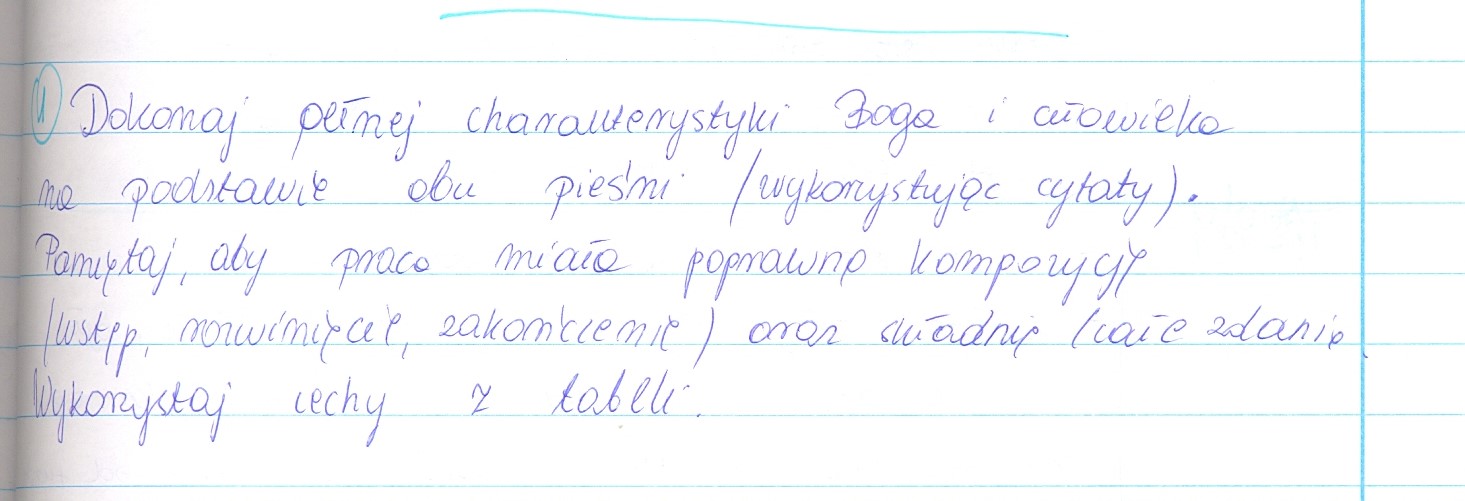 4) Dokonaj pełnej charakterystyki Boga i człowieka
na podstawie obu pieśni (wykorzystując cytaty).
Pamiętaj, aby praca miała poprawną kompozycję
(wstęp, rozwinięcie, zakończenie) oraz składnię (całe zdania
Wykorzystaj cechy z tabelki.